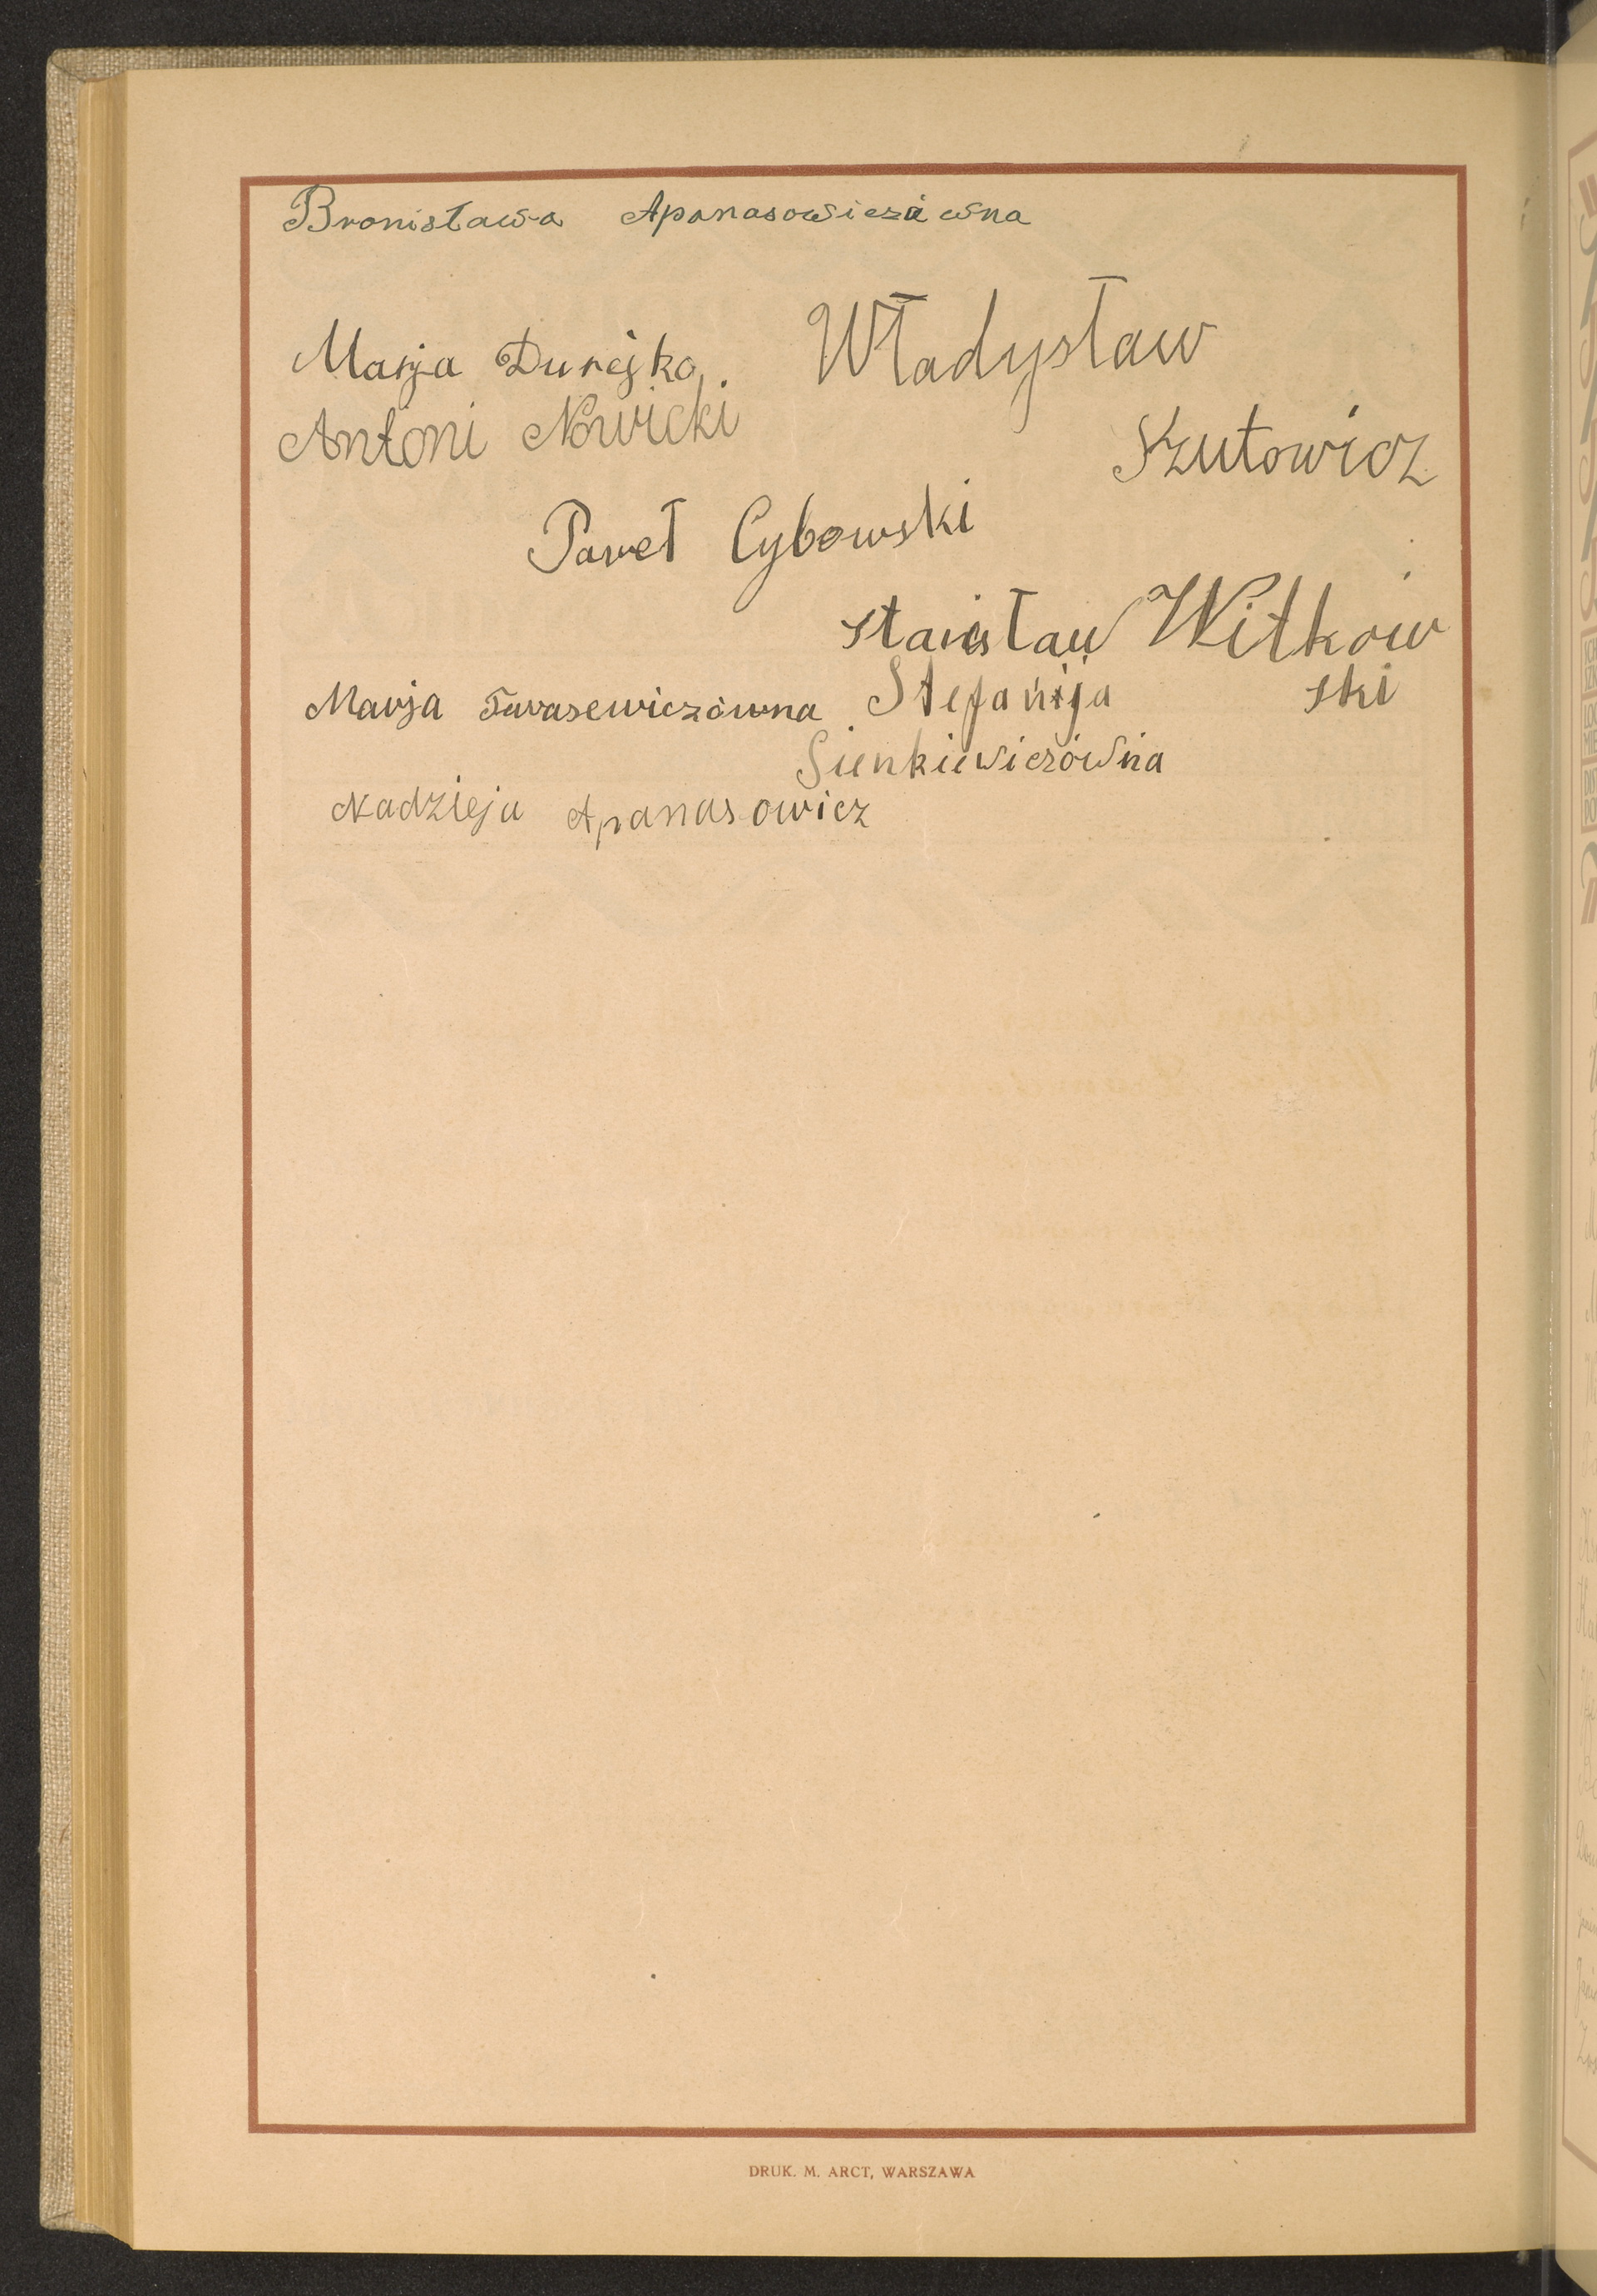 Bronisława Apanasowiczówna
Marja Durejko
Władysław
Antoni Nowicki
Szutowicz
Paweł Cybowski
Stanisław Witkow
ski
Marja Tarasewiczówna
Stefanija
Sienkiewiczówna
Nadzieja Apanasowicz
DRUK. M. ARCT, WARSZAWA